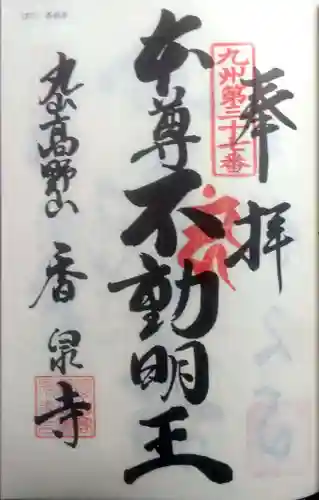 奉拝
九州第三十七番
本尊不動明王
高野山 香泉寺